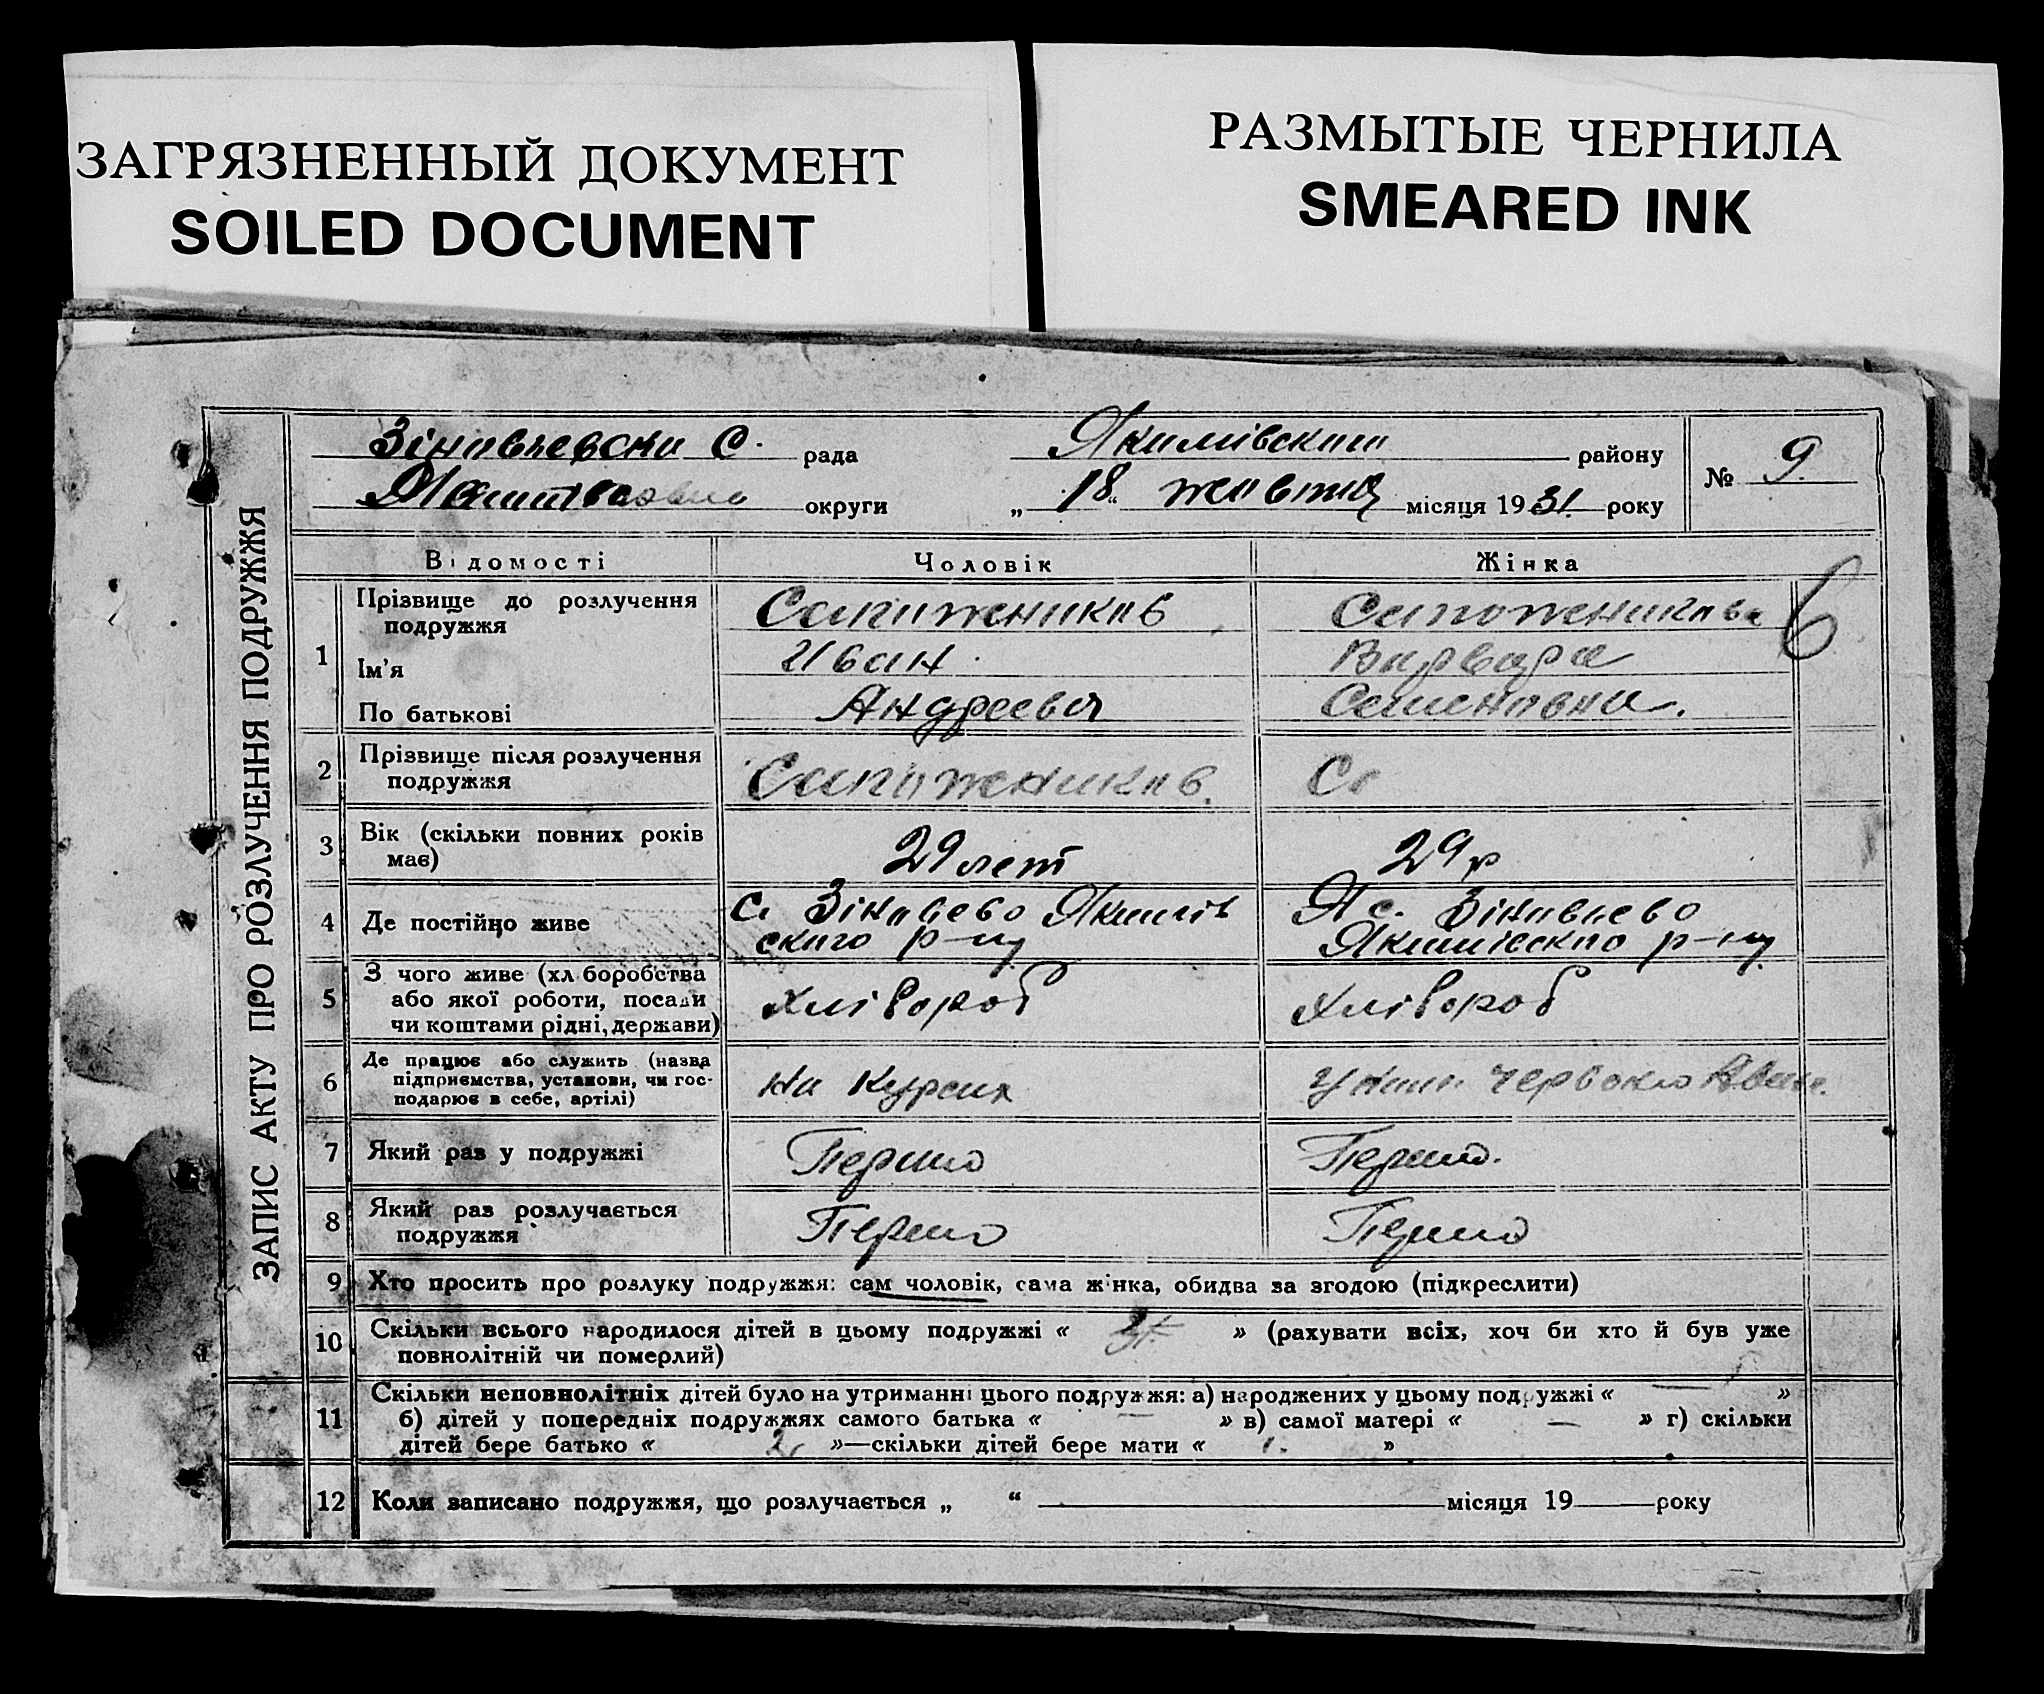 ЗАГРЯЗНЕННЫЙ ДОКУМЕНТ
SOILED DOCUMENT
РАЗМЫТЫЕ ЧЕРНИЛА
SMEARED INK
ЗАПИС АКТУ ПРО РОЗЛУЧЕННЯ ПОДРУЖЖЯ
Зіновьевска С. рада Якимівского району № 9.
округи „18“ жовтня місяця 1931. року
Відомості Чоловік Жінка
6
1 Прізвище до розлучення подружжя Сапожников Сапожникова
Ім'я Иван Варвара
По батькові Андреевич Семеновна.
2 Прізвище після розлучення подружжя Сапожников. Са
3 Вік (скільки повних років має) 29 лет 29 р
4 Де постійно живе С. Зіновьево Якимівского р-ну с. Зіновьево Якимівского р-ну
5 З чого живе (хл боробства або якої роботи, посади чи коштами рідні, держави) Хлібороб Хлібороб
6 Де працює або служить (назва підприємства, установи, чи господарює в себе, артілі) на курсах червоно
7 Який раз у подружжі Першо Першо.
8 Який раз розлучається подружжя Першо Першо
9 Хто просить про розлуку подружжя: сам чоловік, сама жінка, обидва за згодою (підкреслити)
10 Скільки всього народилося дітей в цьому подружжі « » (рахувати всіх, хоч би хто й був уже
повнолітній чи померлий)
11 Скільки неповнолітніх дітей було на утриманні цього подружжя: а) народжених у цьому подружжі « — »
б) дітей у попередніх подружжях самого батька « — » в) самої матері « — » г) скільки
дітей бере батько « 2 »—скільки дітей бере мати « 1. »
12 Коли записано подружжя, що розлучається „ “ місяця 19 року